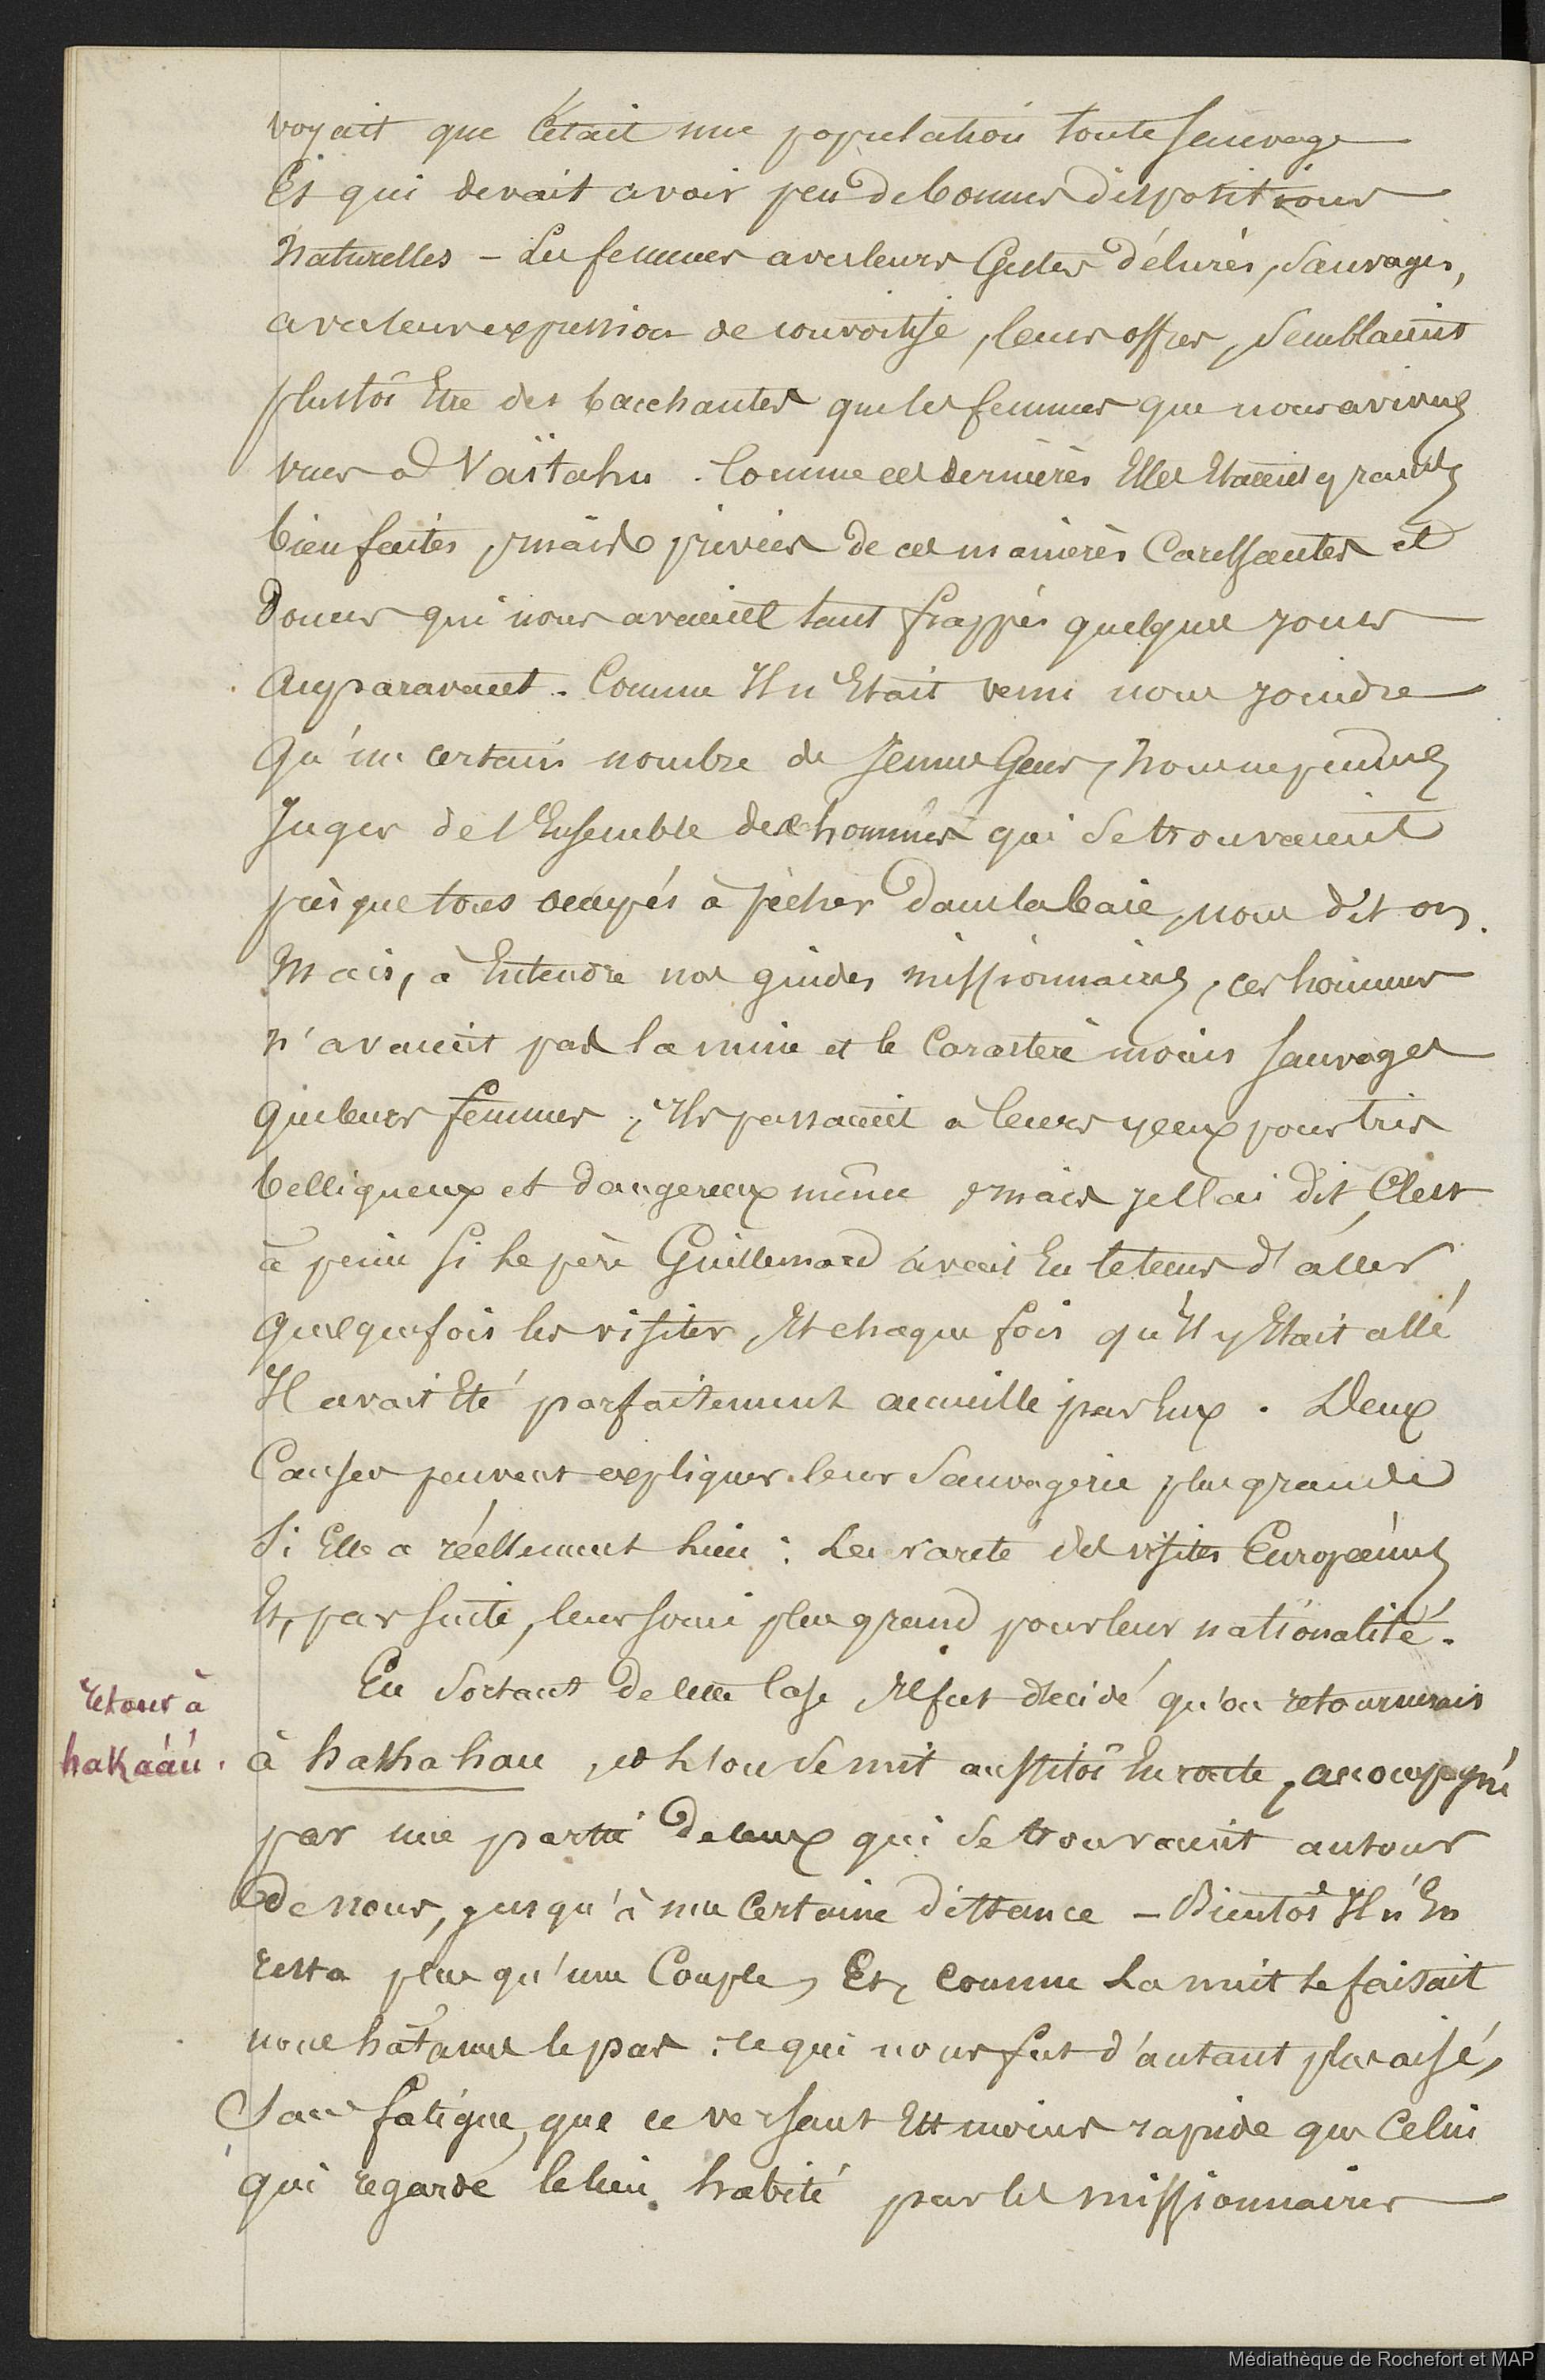 voyait que C'était une population toute sauvage
Et qui devait avoir peu de bonnes dispositions
naturelles – Les femmes avec leurs Gestes délurés, sauvages,
avec leur expression de convoitise, leurs offres, semblaient
plustôt Etre des bacchantes que les femmes que nous avions
vues à Vaïtahu. Comme ces dernières Elles Etaient grandes
bien faites, mais privées de ces manières Caressantes et
douces qui nous avaient tant frappés quelques jours
auparavant. Comme Il n'Etait venu nous joindre
qu'un certain nombre de Jeunes Gens, nous ne pûmes
Juger de l'Ensemble des hommes qui se trouvaient
presque tous occupés à pêcher dans la baie, nous dit on.
Mais, à Entendre nos guides missionnaires, ces hommes
n'avaient pas la mine et le Caractère moins sauvages
que leurs femmes ; Ils passaient à leurs yeux pour très
belliqueux et dangereux même, mais je l'ai dit, C'est
à peine si le père Guillemard avait Eu le tems d'aller
quelquefois les visiter, Et chaque fois qu'Il y Etait allé
Il avait Eté parfaitement accueilli par Eux. Deux
Causes peuvent expliquer leur Sauvagerie plus grande
Si Elle a réellement lieu : La rareté des visites Européennes
Et, par suite, leur souci plus grand pour leur nationalité.
En sortant de cette Case, Il fut décidé qu'on retournerait
retour à
hakaáú.
à hakahau, et l'on se mit aussitôt En route, accompagné
par une partie de ceux qui se trouvaient autour
de nous, jusqu'à une Certaine distance – Bientôt Il n'En
resta plus qu'une Couple, Et, comme La nuit se faisait
nous hâtâmes le pas : ce qui nous fut d'autant plus aisé,
Sans fatigue, que ce versant Est moins rapide que Celui
qui regarde le lieu habité par les missionnaires
Médiathèque de Rochefort et MAP